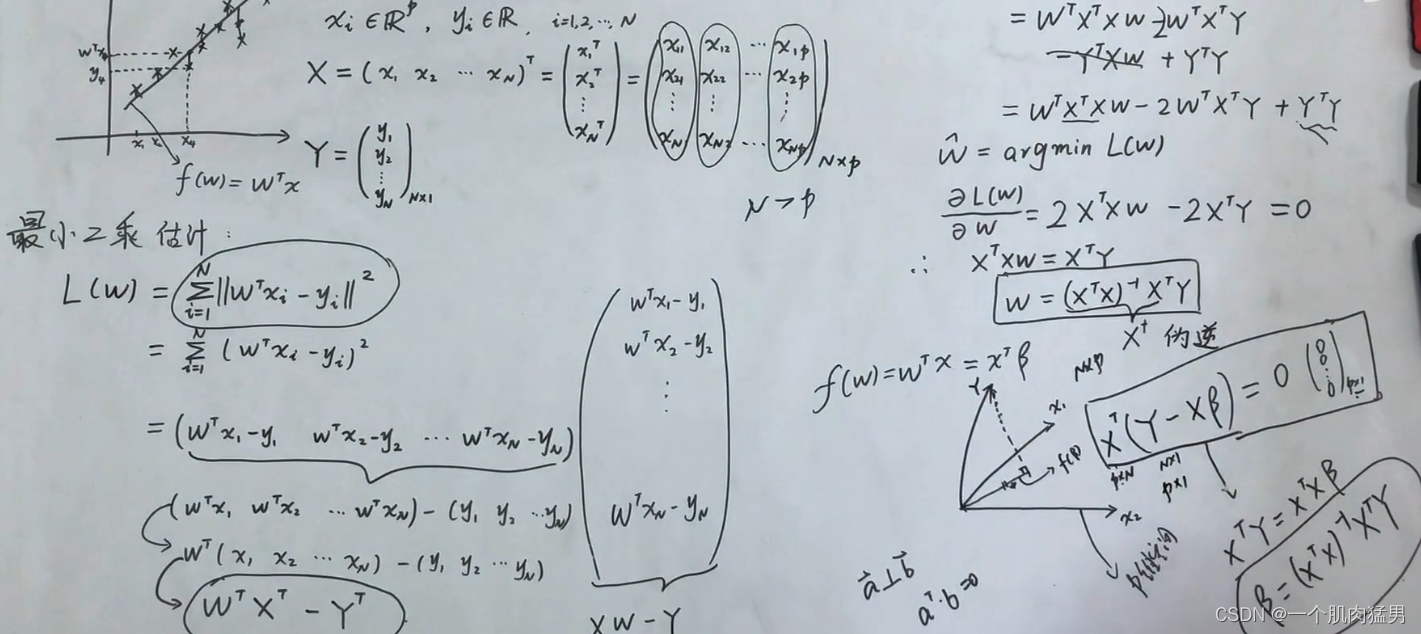 xᵢ ∈ ℝᵖ, yᵢ ∈ ℝ, i=1,2,⋯,N
X = (x₁ x₂ ⋯ x_N)ᵀ = (x₁ᵀ x₂ᵀ ⋮ x_Nᵀ) = (x₁₁ x₁₂ ⋯ x₁p
x₂₁ x₂₂ ⋯ x₂p
⋮ ⋮ ⋮
x_N₁ x_N₂ ⋯ x_Np)N×p
Wᵀx₄
y₄
x₁ x₂ x₄
f(w) = Wᵀx
Y = (y₁ y₂ ⋮ y_N)N×1
N > p
最小二乘估计:
L(W) = ∑ᵢ₌₁ᴺ ‖Wᵀxᵢ - yᵢ‖²
= ∑ᵢ₌₁ᴺ (Wᵀxᵢ - yᵢ)²
= (Wᵀx₁-y₁ Wᵀx₂-y₂ ⋯ Wᵀx_N-y_N)
(Wᵀx₁-y₁
Wᵀx₂-y₂
⋮
Wᵀx_N-y_N)
(Wᵀx₁ Wᵀx₂ ⋯ Wᵀx_N) - (y₁ y₂ ⋯ y_N)
Wᵀ(x₁ x₂ ⋯ x_N) - (y₁ y₂ ⋯ y_N)
WᵀXᵀ - Yᵀ
XW - Y
= WᵀXᵀXW - 2WᵀXᵀY
-YᵀXW + YᵀY
= WᵀXᵀXW - 2WᵀXᵀY + YᵀY
Ŵ = argmin L(W)
∂L(W)/∂W = 2XᵀXW - 2XᵀY = 0
∴ XᵀXW = XᵀY
W = (XᵀX)⁻¹XᵀY
X† 伪逆
f(W) = Wᵀx = xᵀβ
Y
x₁
x₂
f(β)
N×p
Xᵀ(Y - Xβ) = 0 (0 0 ⋮ 0)p×1
p×N N×1
p×1
a⃗⊥b⃗
aᵀ·b=0
XᵀY = XᵀXβ
β = (XᵀX)⁻¹XᵀY
CSDN @一个肌肉猛男